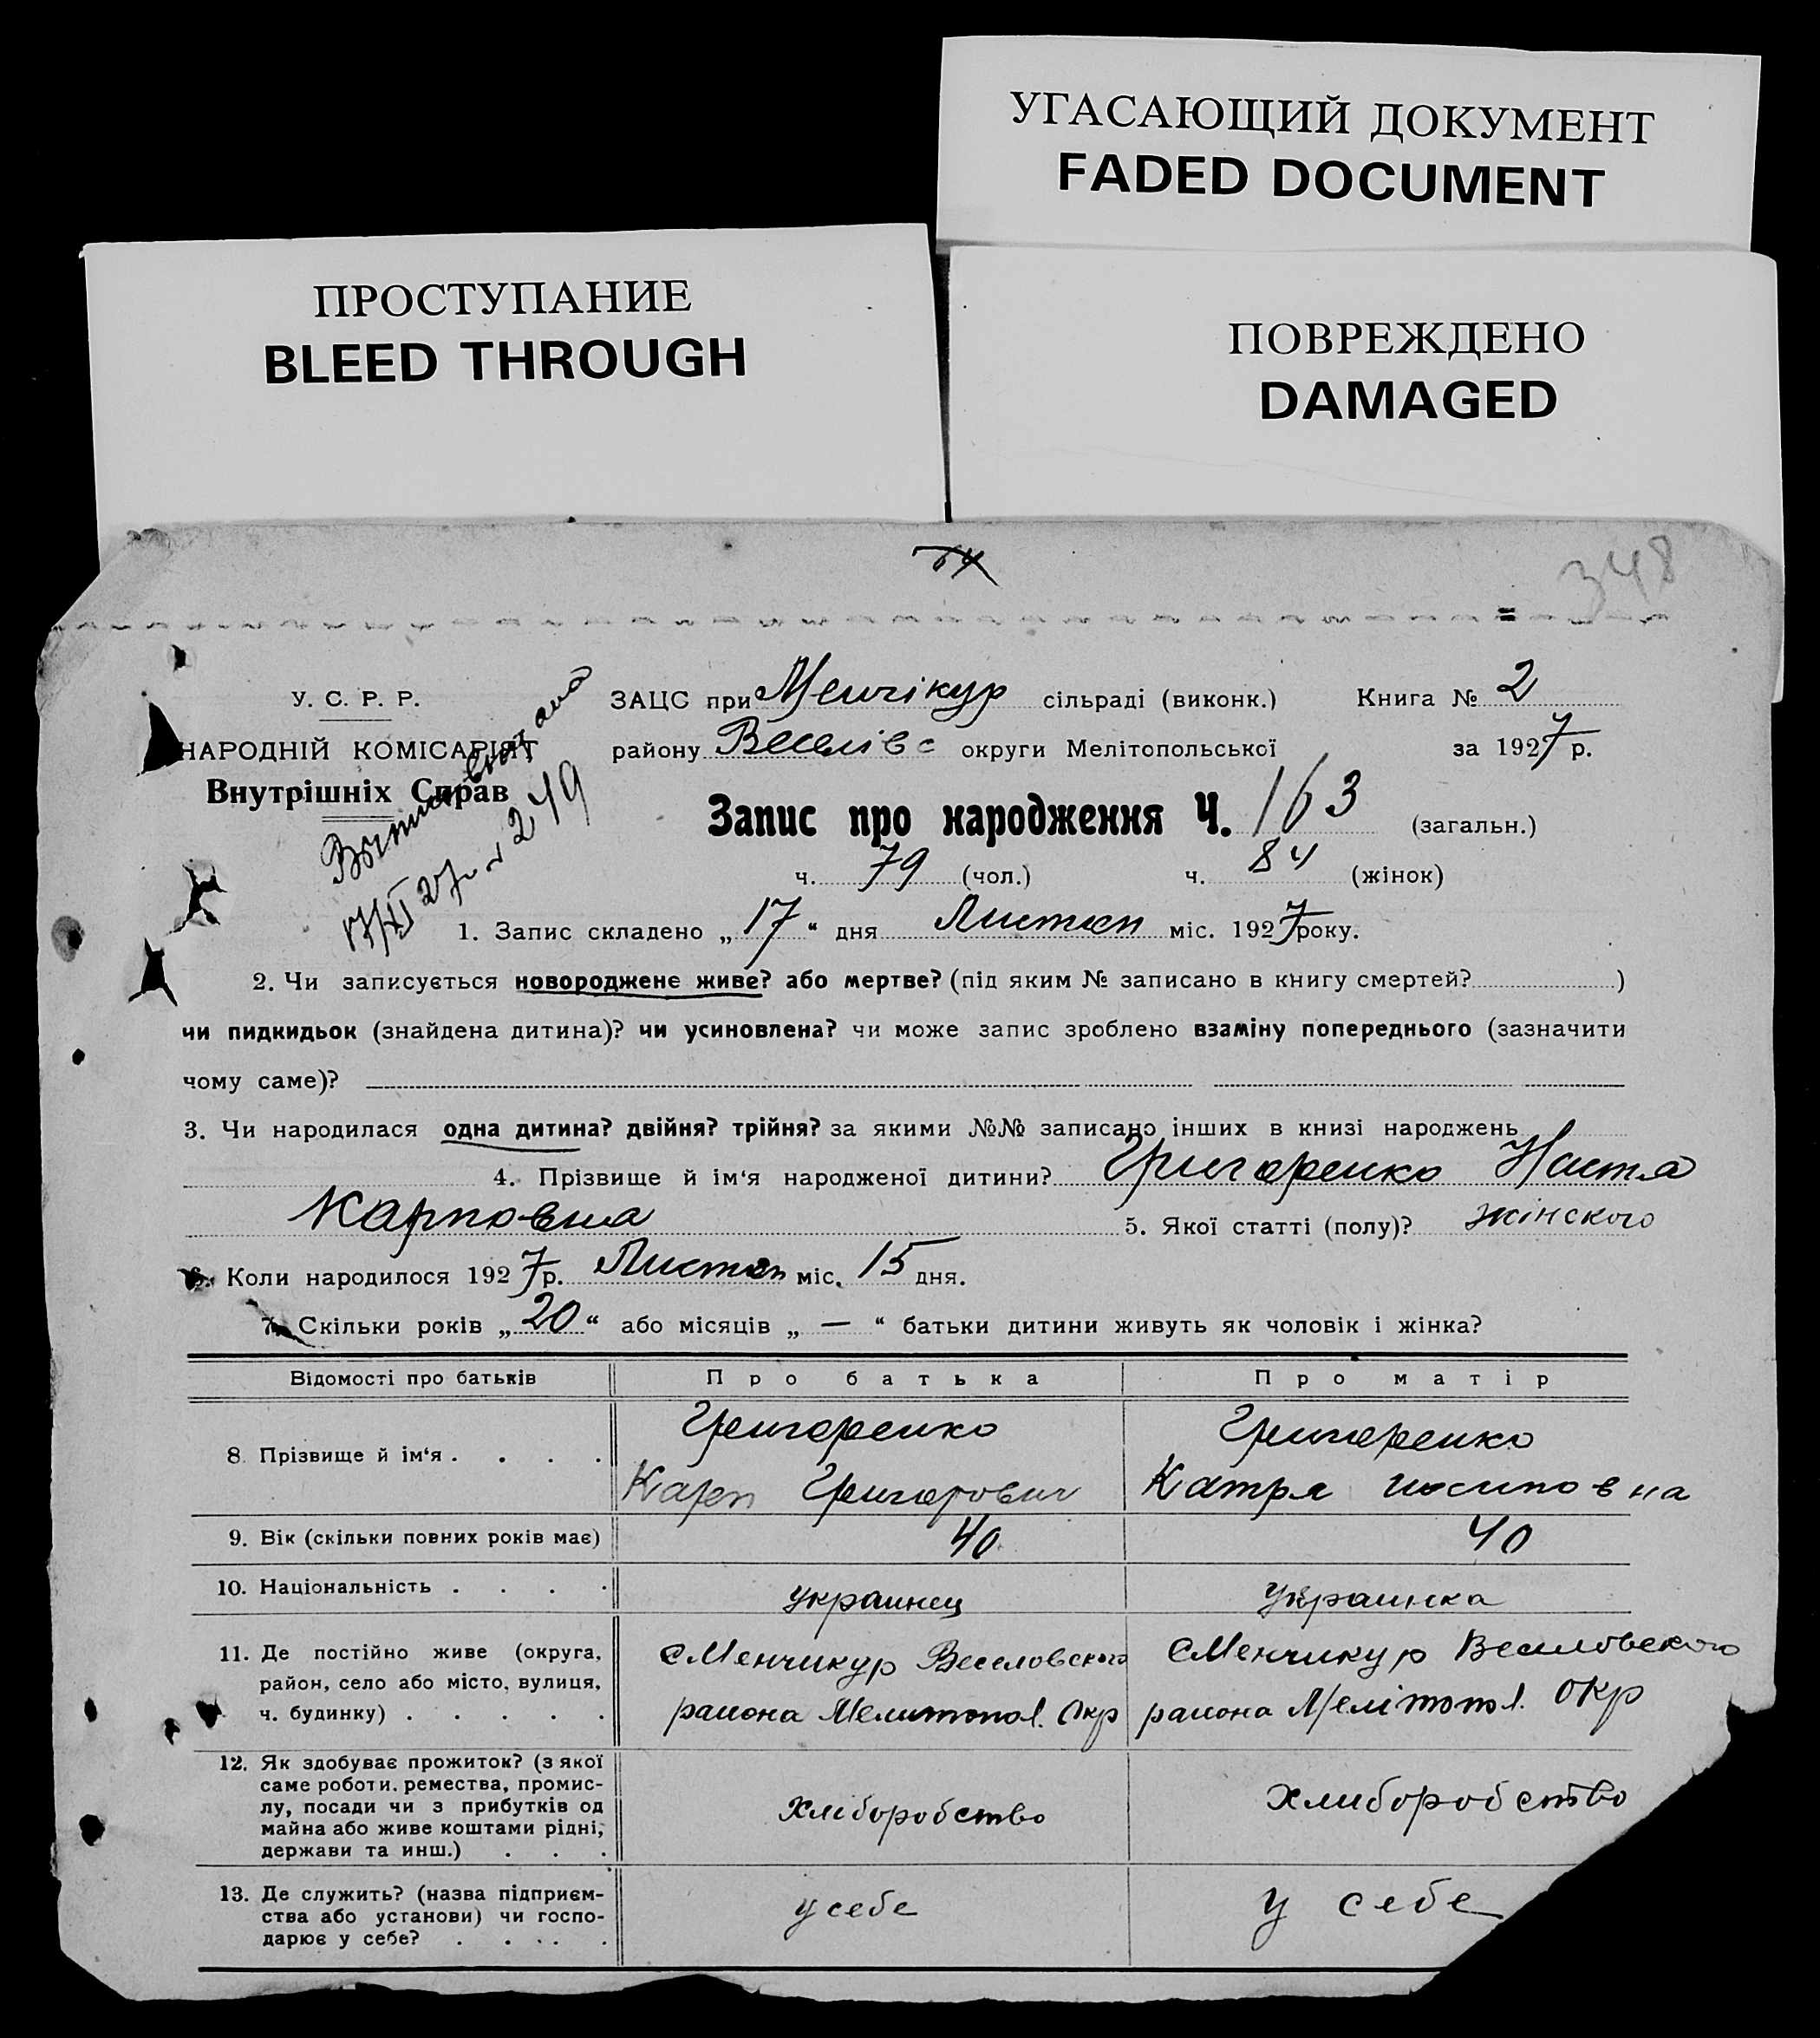 УГАСАЮЩИЙ ДОКУМЕНТ
FADED DOCUMENT
ПРОСТУПАНИЕ
BLEED THROUGH
ПОВРЕЖДЕНО
DAMAGED
348
У. С. Р. Р.
НАРОДНІЙ КОМІСАРІЯТ
Внутрішніх Справ
17/XI 27р. № 249
ЗАЦС при Менчікур сільраді (виконк.) Книга № 2
району Веселівс округи Мелітопольської за 1927 р.
Запис про народження Ч. 163 (загальн.)
ч. 79 (чол.) ч. 84 (жінок)
1. Запис складено „ 17 “ дня Листоп міс. 1927 року.
2. Чи записується новороджене живе? або мертве? (під яким № записано в книгу смертей? )
чи пидкидьок (знайдена дитина)? чи усиновлена? чи може запис зроблено взаміну попереднього (зазначити
чому саме)?
3. Чи народилася одна дитина? двійня? трійня? за якими №№ записано інших в книзі народжень
4. Прізвище й ім‘я народженої дитини? Григоренко Настя
Карповна 5. Якої статті (полу)? жінского
6. Коли народилося 1927 р. Листоп міс. 15 дня.
7. Скільки років „ 20 “ або місяців „ — “ батьки дитини живуть як чоловік і жінка?
Відомості про батьків Про батька Про матір
8. Прізвище й ім‘я . . . . Григоренко Карп Григорович Григоренко Катря иосиповна
9. Вік (скільки повних років має) 40 40
10. Національність . . . . украинец украинка
11. Де постійно живе (округа, сМенчикур Веселовского сМенчикур Веселовского
район, село або місто, вулиця,
ч. будинку) . . . . . района Мелитопол. Окр района Мелітопол. Окр
12. Як здобуває прожиток? (з якої
саме роботи, ремества, промис-
лу, посади чи з прибутків од хліборобство хлиборобство
майна або живе коштами рідні,
держави та инш.) . . .
13. Де служить? (назва підприєм-
ства або установи) чи госпо- у себе у себе
дарює у себе? . . . .